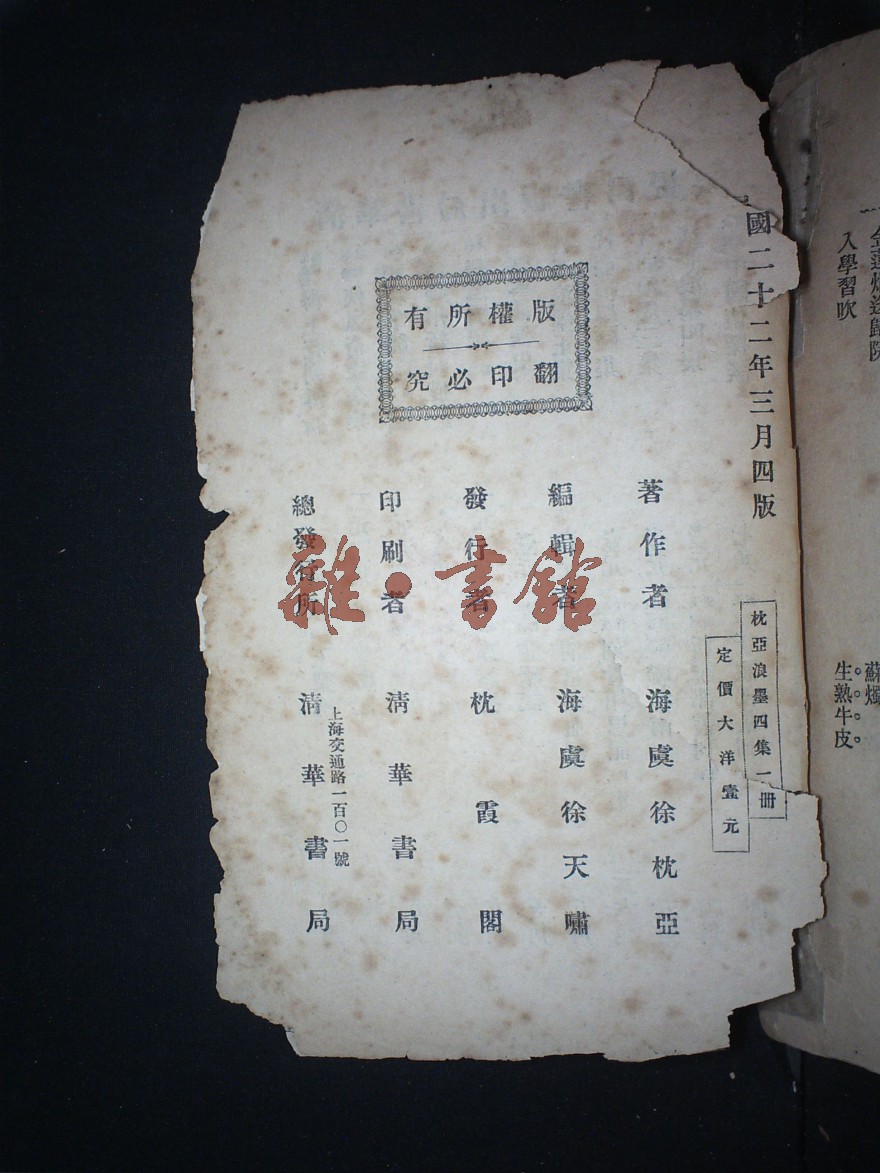 金蓮燭送歸院
入學習吹
蘇燭
生熟牛皮
國二十二年三月四版
枕亞浪墨四集一册
定價大洋壹元
版權所有
翻印必究
著作者 海虞徐枕亞
編輯者 海虞徐天嘯
發行者 枕霞閣
印刷者 清華書局
總發行所 清華書局
上海交通路一百〇一號
雜·書館